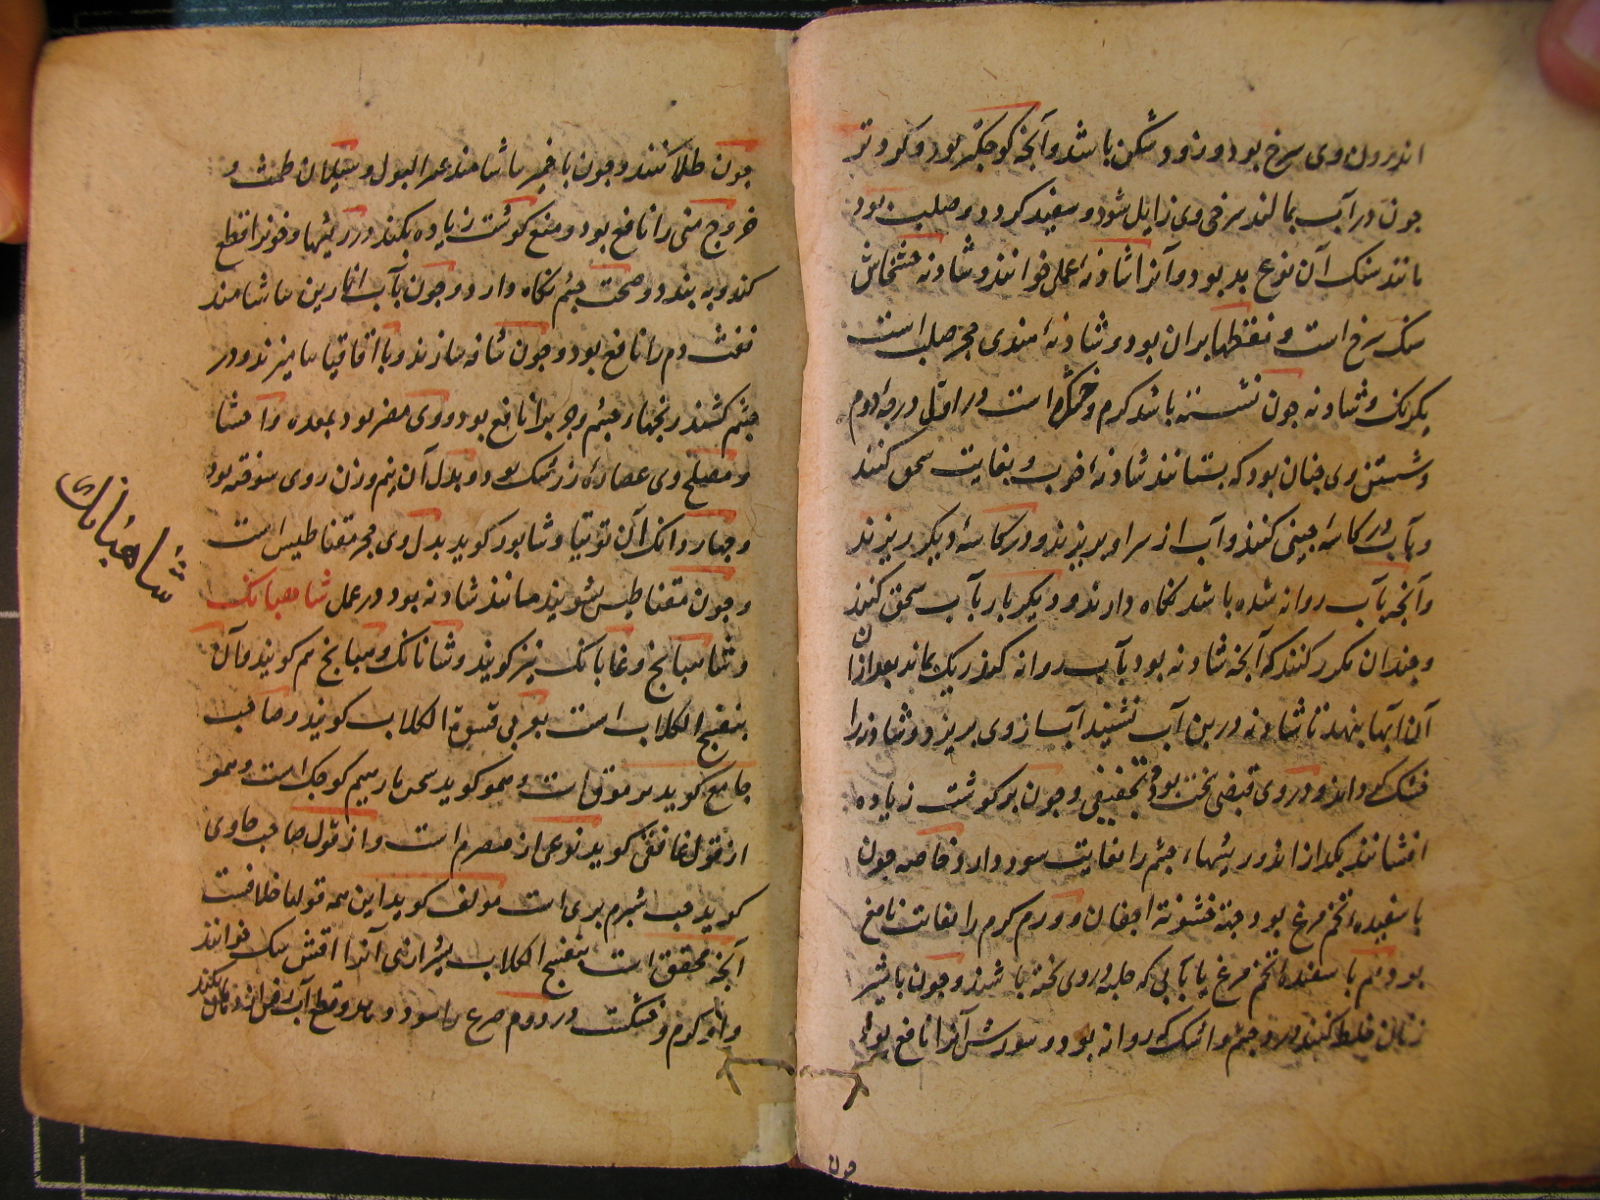 اندرون وی سرخ بود و زود شکن باشد و آنچه کوچکتر بود و کرد و تر
چون در آب بمالند سرخی وی زایل شود و سفید کردد و صلب بود
مانند سنک آن نوع بد بود و آنرا شادنهٔ عملی خوانند و شادنه خشخاش
سنک سرخ است و نقطها بران بود و شادنهٔ هندی حجر صلب است
یکرنک و شادنه چون شسته باشد کرم و خشک است در اول درجه دوم
و شستن وی چنان بود که بستانند شادنه خوب و بغایت سحق کنند
و بآب در کاسهٔ چینی کنند و آب از سر او بریزند و در کاسهٔ دیکر ریزند
و آنچه بآب روانه شده باشد نکاه دارند و دیکر بار بآب سحق کنند
و چندان مکرر کنند که آنچه شادنه بود بآب روانه کند ریک بماند بعد از ان
آن آبها بنهند تا شادنه در بن آب نشیند آب از وی بریزد و شادنه را
خشک کرداند و در وی قبضی سخت بود و تجفیفی و چون بر کوشت زیاده
افشانند بکدازاند و ریشهاء چشم را بغایت سود دارد خاصه چون
با سفیده تخم مرغ بود جهة خشونة اجفان و ورم کرم را بغایت نافع
بود هم با سفیدهٔ تخم مرغ یا بآبی که حلبه در وی پخته باشند و چون با شیر
زنان خلط کنند درد چشم و اشک روانه بود و سوزش آنرا نافع بود
چون طلا کنند و چون با خمر بیاشامند عسر البول و سیلان طمث و
خروج منی را نافع بود و منع کوشت زیاده بکند در ریشها و خون را قطع
کند و به بندد و صحت چشم نکاه دارد و چون بآب انارین بیاشامند
نفث دم را نافع بود و چون شافه سازند و با اقاقیا بیامیزند و در
چشم کشند رنجهاء چشم و جرب را نافع بود و وی مضر بود بمعده و احشا
و مصلح وی عصارهٔ زرشک بود و بدل آن نیم وزن روی سوخته بود
و چهار دانک آن توتیا و شابور کوید بدل وی حجر مقناطیس است
و چون مقناطیس بشویند مانند شادنه بود در عمل شاهبانک
و شاهبابنج و غابانک نیز کویند و شانانک و سبابنج هم کویند و آن
بنفسج الکلاب است بعربی قسوة الکلاب کویند و صاحب
جامع کوید برنوف است و همو کوید سحربار سیم کوچک است و همو
از قول غافقی کوید نوعی از حصرم است و از قول صاحب حاوی
کوید حب شبرم بری است مولف کوید این همه قولها خلافست
آنچه محقق است بنفسج الکلاب شیرازی آنرا اقش سک خوانند
و آن کرم و خشکست در دوم صرع را سود دهد و قطع آب دهن
شاهبانک